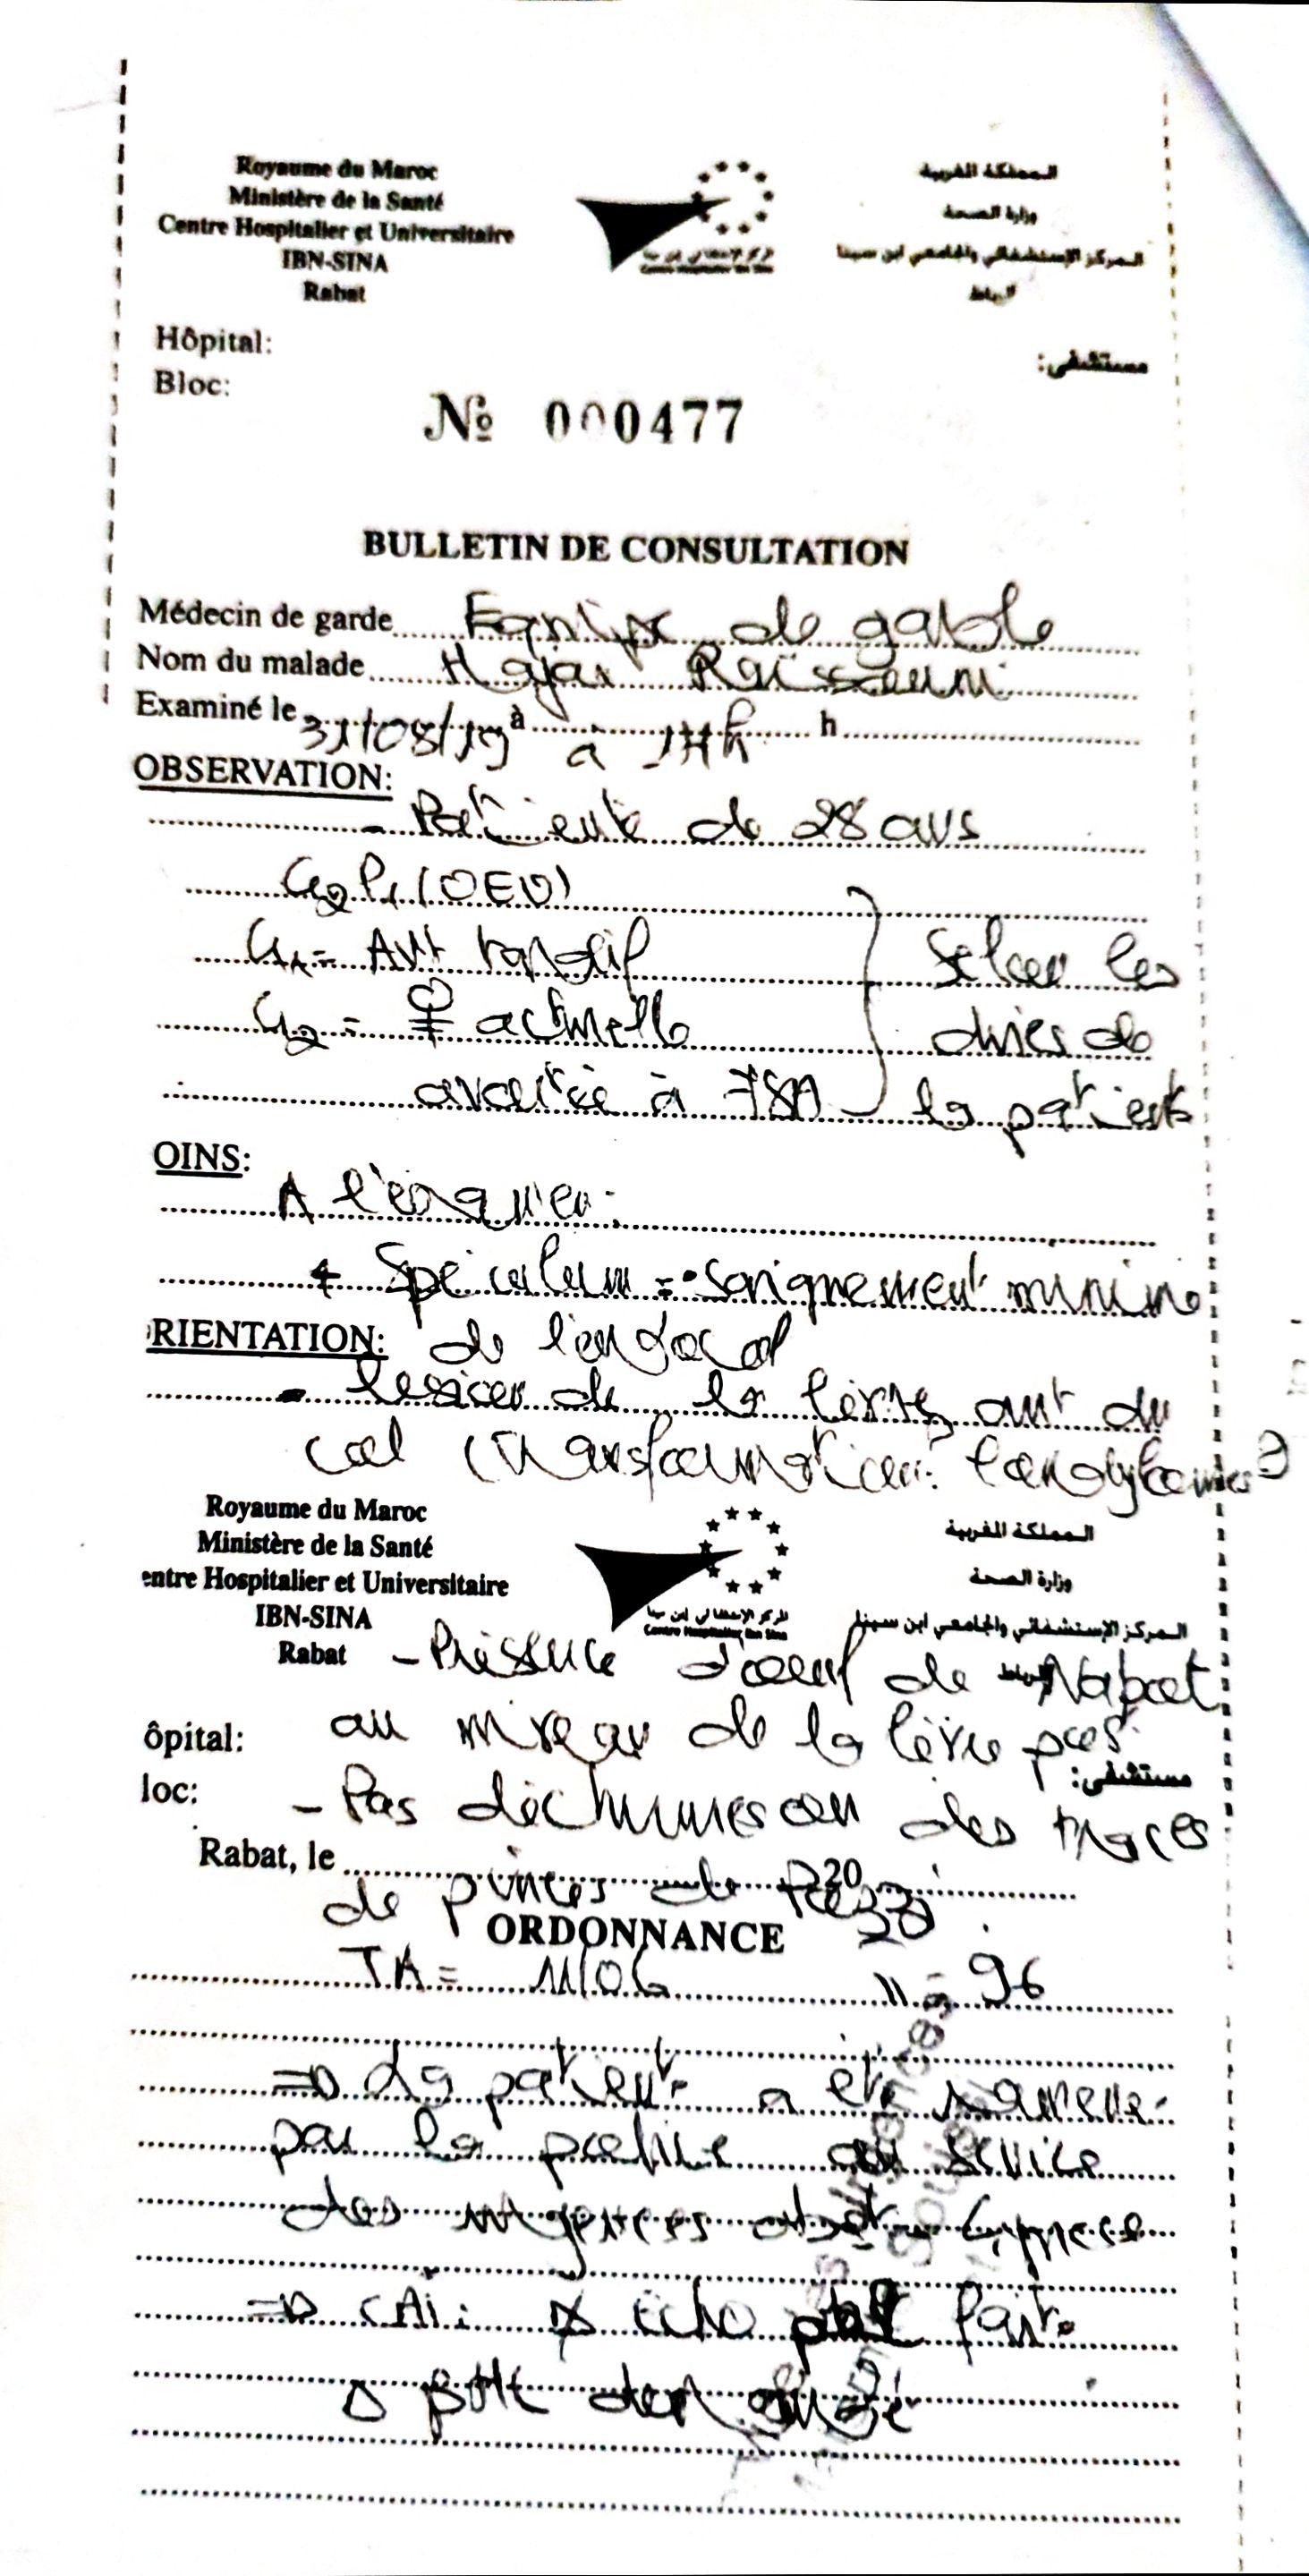 Royaume du Maroc
Ministère de la Santé
Centre Hospitalier et Universitaire
IBN-SINA
Rabat
المملكة المغربية
وزارة الصحة
المركز الإستشفائي والجامعي ابن سينا
الرباط
Centre Hospitalier Ibn Sina
Hôpital:
مستشفى:
Bloc:
№ 000477
BULLETIN DE CONSULTATION
Médecin de garde Equipe de garde
Nom du malade Hajar Raissouni
Examiné le 31/08/19 à h
à 14h
OBSERVATION:
- Patiente de 28 ans
G2P1(OEV)
G1 = Avt tardif
G2 = actuelle
avortée à 7SA
Selon les
dires de
la patiente
OINS:
A l'examen:
+ Spéculum = saignement minime
RIENTATION: de l'endocol
- lésion de la lèvre ant du
col (transformation
Royaume du Maroc
Ministère de la Santé
entre Hospitalier et Universitaire
IBN-SINA
Rabat
المملكة المغربية
وزارة الصحة
المركز الإستشفائي والجامعي ابن سينا
الرباط
Centre Hospitalier Ibn Sina
- Présence d'oeuf de Nabot
ôpital: au niveau de la lèvre post
مستشفى:
loc: - Pas d'échymoses ou des traces
Rabat, le 20
de pinces de Pozzi
ORDONNANCE
TA = 11/06 = 96
=> La patiente a été ramenée
par la police au service
des urgences
=> CAT: écho faite